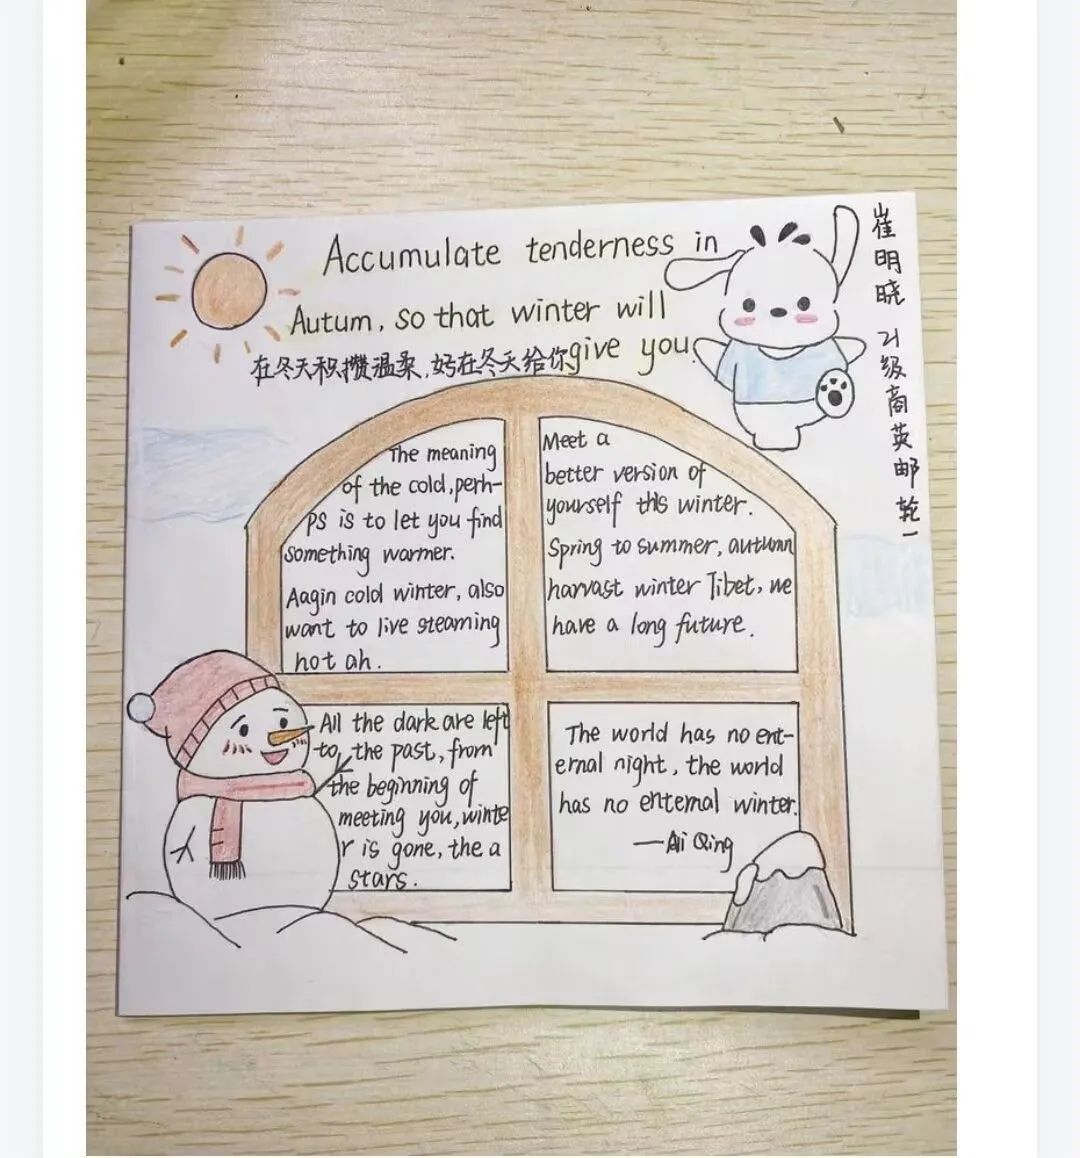 Accumulate tenderness in
Autum, so that winter will
give you.
在冬天积攒温柔,好在冬天给你
崔明晓 21级商英邮轮一
The meaning
of the cold, perh-
ps is to let you find
something warmer.
Aagin cold winter, also
want to live steaming
hot ah.
Meet a
better version of
yourself this winter.
Spring to summer, autumn
harvast winter Tibet, we
have a long future.
All the dark are left
to, the past, from
the beginning of
meeting you, winte
r is gone, the a
stars.
The world has no ent-
ernal night, the world
has no enternal winter.
—Ali Qing